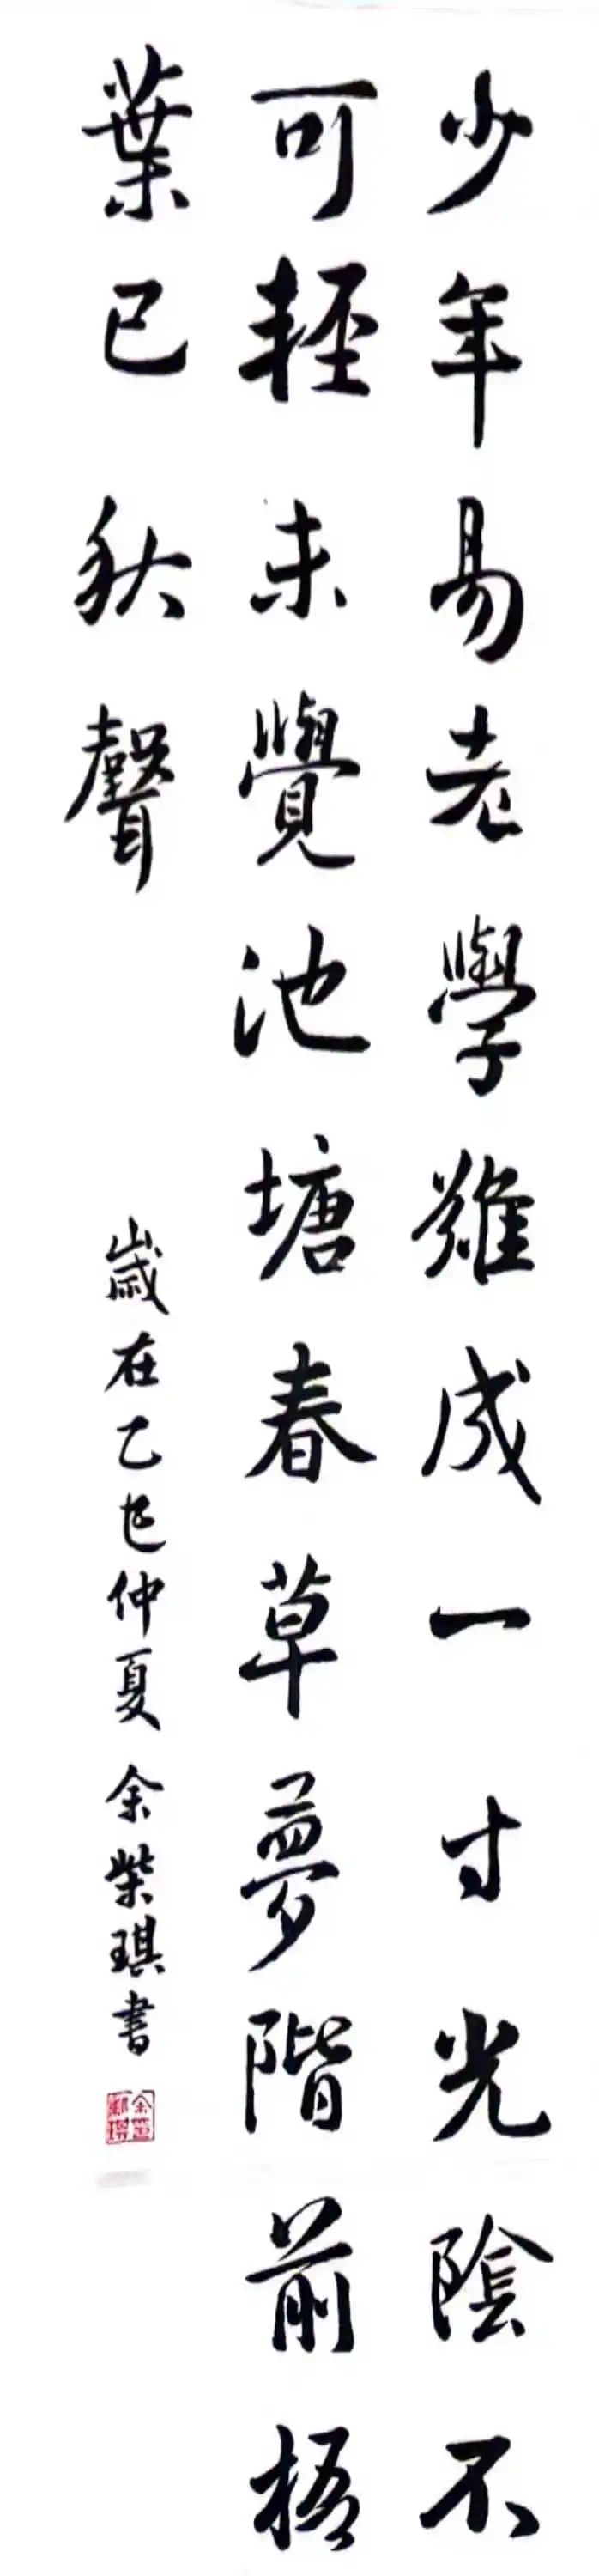 少年易老學難成一寸光陰不
可輕未覺池塘春草夢階前梧
葉已秋聲
歲在乙巳仲夏余柴琪書